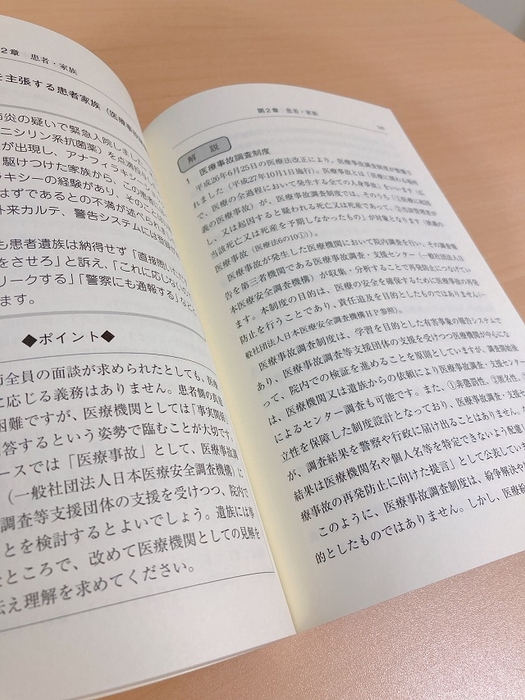 2章 患者・家族
を主張する患者家族（医療事故
肺炎の疑いで緊急入院しまし
ニシリン系抗菌薬）を点滴
が出現し、アナフィラキシー
駆けつけた家族から、この患者
ラキシーの経験があり、その
はずであるとの不満が述べられま
外来カルテ、警告システムには
も患者遺族は納得せず「直接
をさせろ」と訴え、「これに応じな
リークする」「警察にも通報する」など
ます。
◆ポイント◆
師全員の面談が求められたとしても、医療
に応じる義務はありません。患者側の
困難ですが、医療機関としては「事実関係
回答するという姿勢で臨むことが大切です。
ースでは「医療事故」として、医療事故
（一般社団法人日本医療安全調査機構）に
調査等支援団体の支援を受けつつ、院内で
ことを検討するとよいでしょう。遺族には
たところで、改めて医療機関としての見解を
伝え理解を求めてください。
第2章 患者・家族
解 説
1 医療事故調査制度
平成26年6月25日の医療法改正により、医療事故調査制度が
れました（平成27年10月1日施行）。医療事故とは「医療に
で、医療の全過程において発生する全ての人身事故」をいいます
義の医療事故）が、医療事故調査制度では、そのうち「①医療に起因
し、又は起因すると疑われる死亡又は死産であって、②当該管理者が
当該死亡又は死産を予期しなかったもの」が対象となります（狭義の
医療事故〔医療法6の10①〕）。
医療事故が発生した医療機関において院内調査を行い、その調査報
告を第三者機関である医療事故調査・支援センター（一般社団法人日
本医療安全調査機構）が収集・分析することで再発防止につなげてい
ます。本制度の目的は、医療の安全を確保するために医療事故の再発
防止を行うことであり、責任追及を目的としたものではありません（一
般社団法人日本医療安全調査機構HP参照）。
医療事故調査制度は、学習を目的とした有害事象の報告システムで
あり、医療事故調査等支援団体の支援を受けつつ医療機関が中心にな
って、院内での検証を進めることを原則としていますが、調査開始後
は、医療機関又は遺族からの依頼により医療事故調査・支援センター
によるセンター調査も可能です。また、①非懲罰性、②秘匿性、③独
立性を保障した制度設計となっており、医療事故調査・支援センター
が、調査結果を警察や行政に届け出ることはありません。
結果は医療機関名や個人名等を特定できないよう配慮し
療事故の再発防止に向けた提言」として公表してい
このように、医療事故調査制度は、紛争解決や
的としたものではありません。しかし、医療